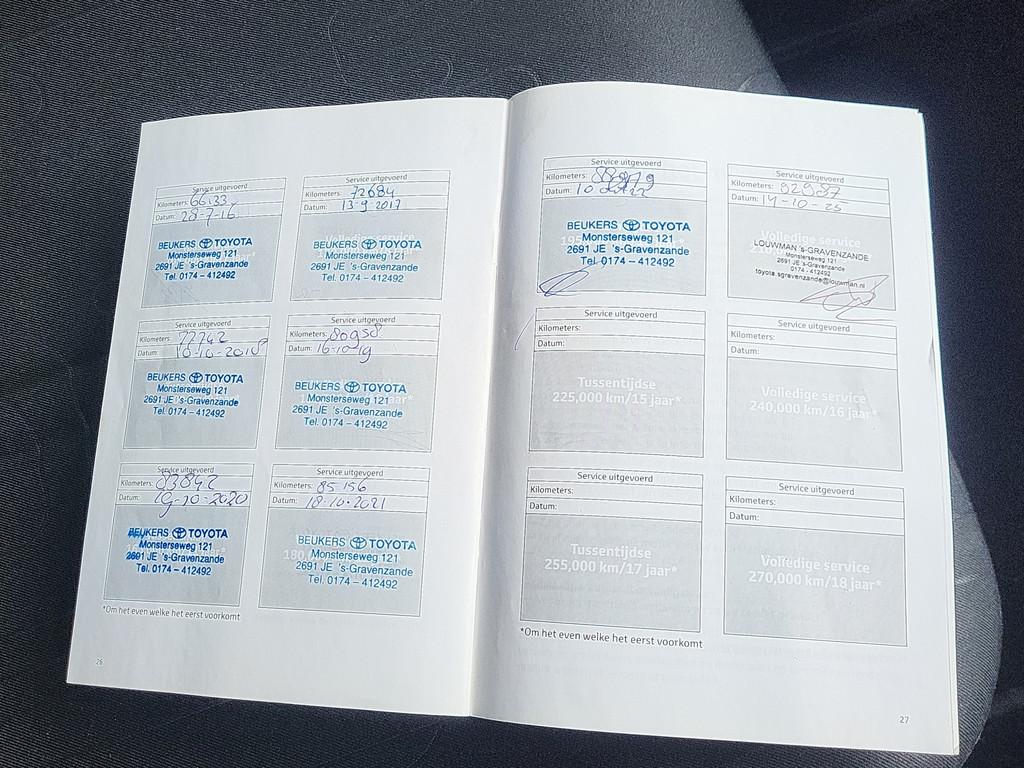 Service uitgevoerd
Kilometers: 66.133
Datum: 28-7-16
BEUKERS TOYOTA
Monsterseweg 121
2691 JE 's-Gravenzande
Tel. 0174 – 412492
Service uitgevoerd
Kilometers: 72684
Datum: 13-9-2017
BEUKERS TOYOTA
Monsterseweg 121
2691 JE 's-Gravenzande
Tel. 0174 – 412492
Service uitgevoerd
Kilometers: 77742
Datum: 10-10-2018
BEUKERS TOYOTA
Monsterseweg 121
2691 JE 's-Gravenzande
Tel. 0174 – 412492
Service uitgevoerd
Kilometers: 80958
Datum: 16-10-19
BEUKERS TOYOTA
Monsterseweg 121
2691 JE 's-Gravenzande
Tel. 0174 – 412492
Service uitgevoerd
Kilometers: 83842
Datum: 19-10-2020
BEUKERS TOYOTA
Monsterseweg 121
2691 JE 's-Gravenzande
Tel. 0174 – 412492
Service uitgevoerd
Kilometers: 85156
Datum: 18-10-2021
BEUKERS TOYOTA
Monsterseweg 121
2691 JE 's-Gravenzande
Tel. 0174 – 412492
*Om het even welke het eerst voorkomt
26
Service uitgevoerd
Kilometers:
Datum:
BEUKERS TOYOTA
Monsterseweg 121
2691 JE 's-Gravenzande
Tel. 0174 – 412492
Service uitgevoerd
Kilometers: 92987
Datum: 14-10-25
Volledige service
LOUWMAN 's-GRAVENZANDE
Monsterseweg 121
2691 JE 's-Gravenzande
0174 - 412492
toyota.sgravenzande@louwman.nl
Service uitgevoerd
Kilometers:
Datum:
Tussentijdse
225,000 km/15 jaar*
Service uitgevoerd
Kilometers:
Datum:
Volledige service
240,000 km/16 jaar*
Service uitgevoerd
Kilometers:
Datum:
Tussentijdse
255,000 km/17 jaar*
Service uitgevoerd
Kilometers:
Datum:
Volledige service
270,000 km/18 jaar*
*Om het even welke het eerst voorkomt
27